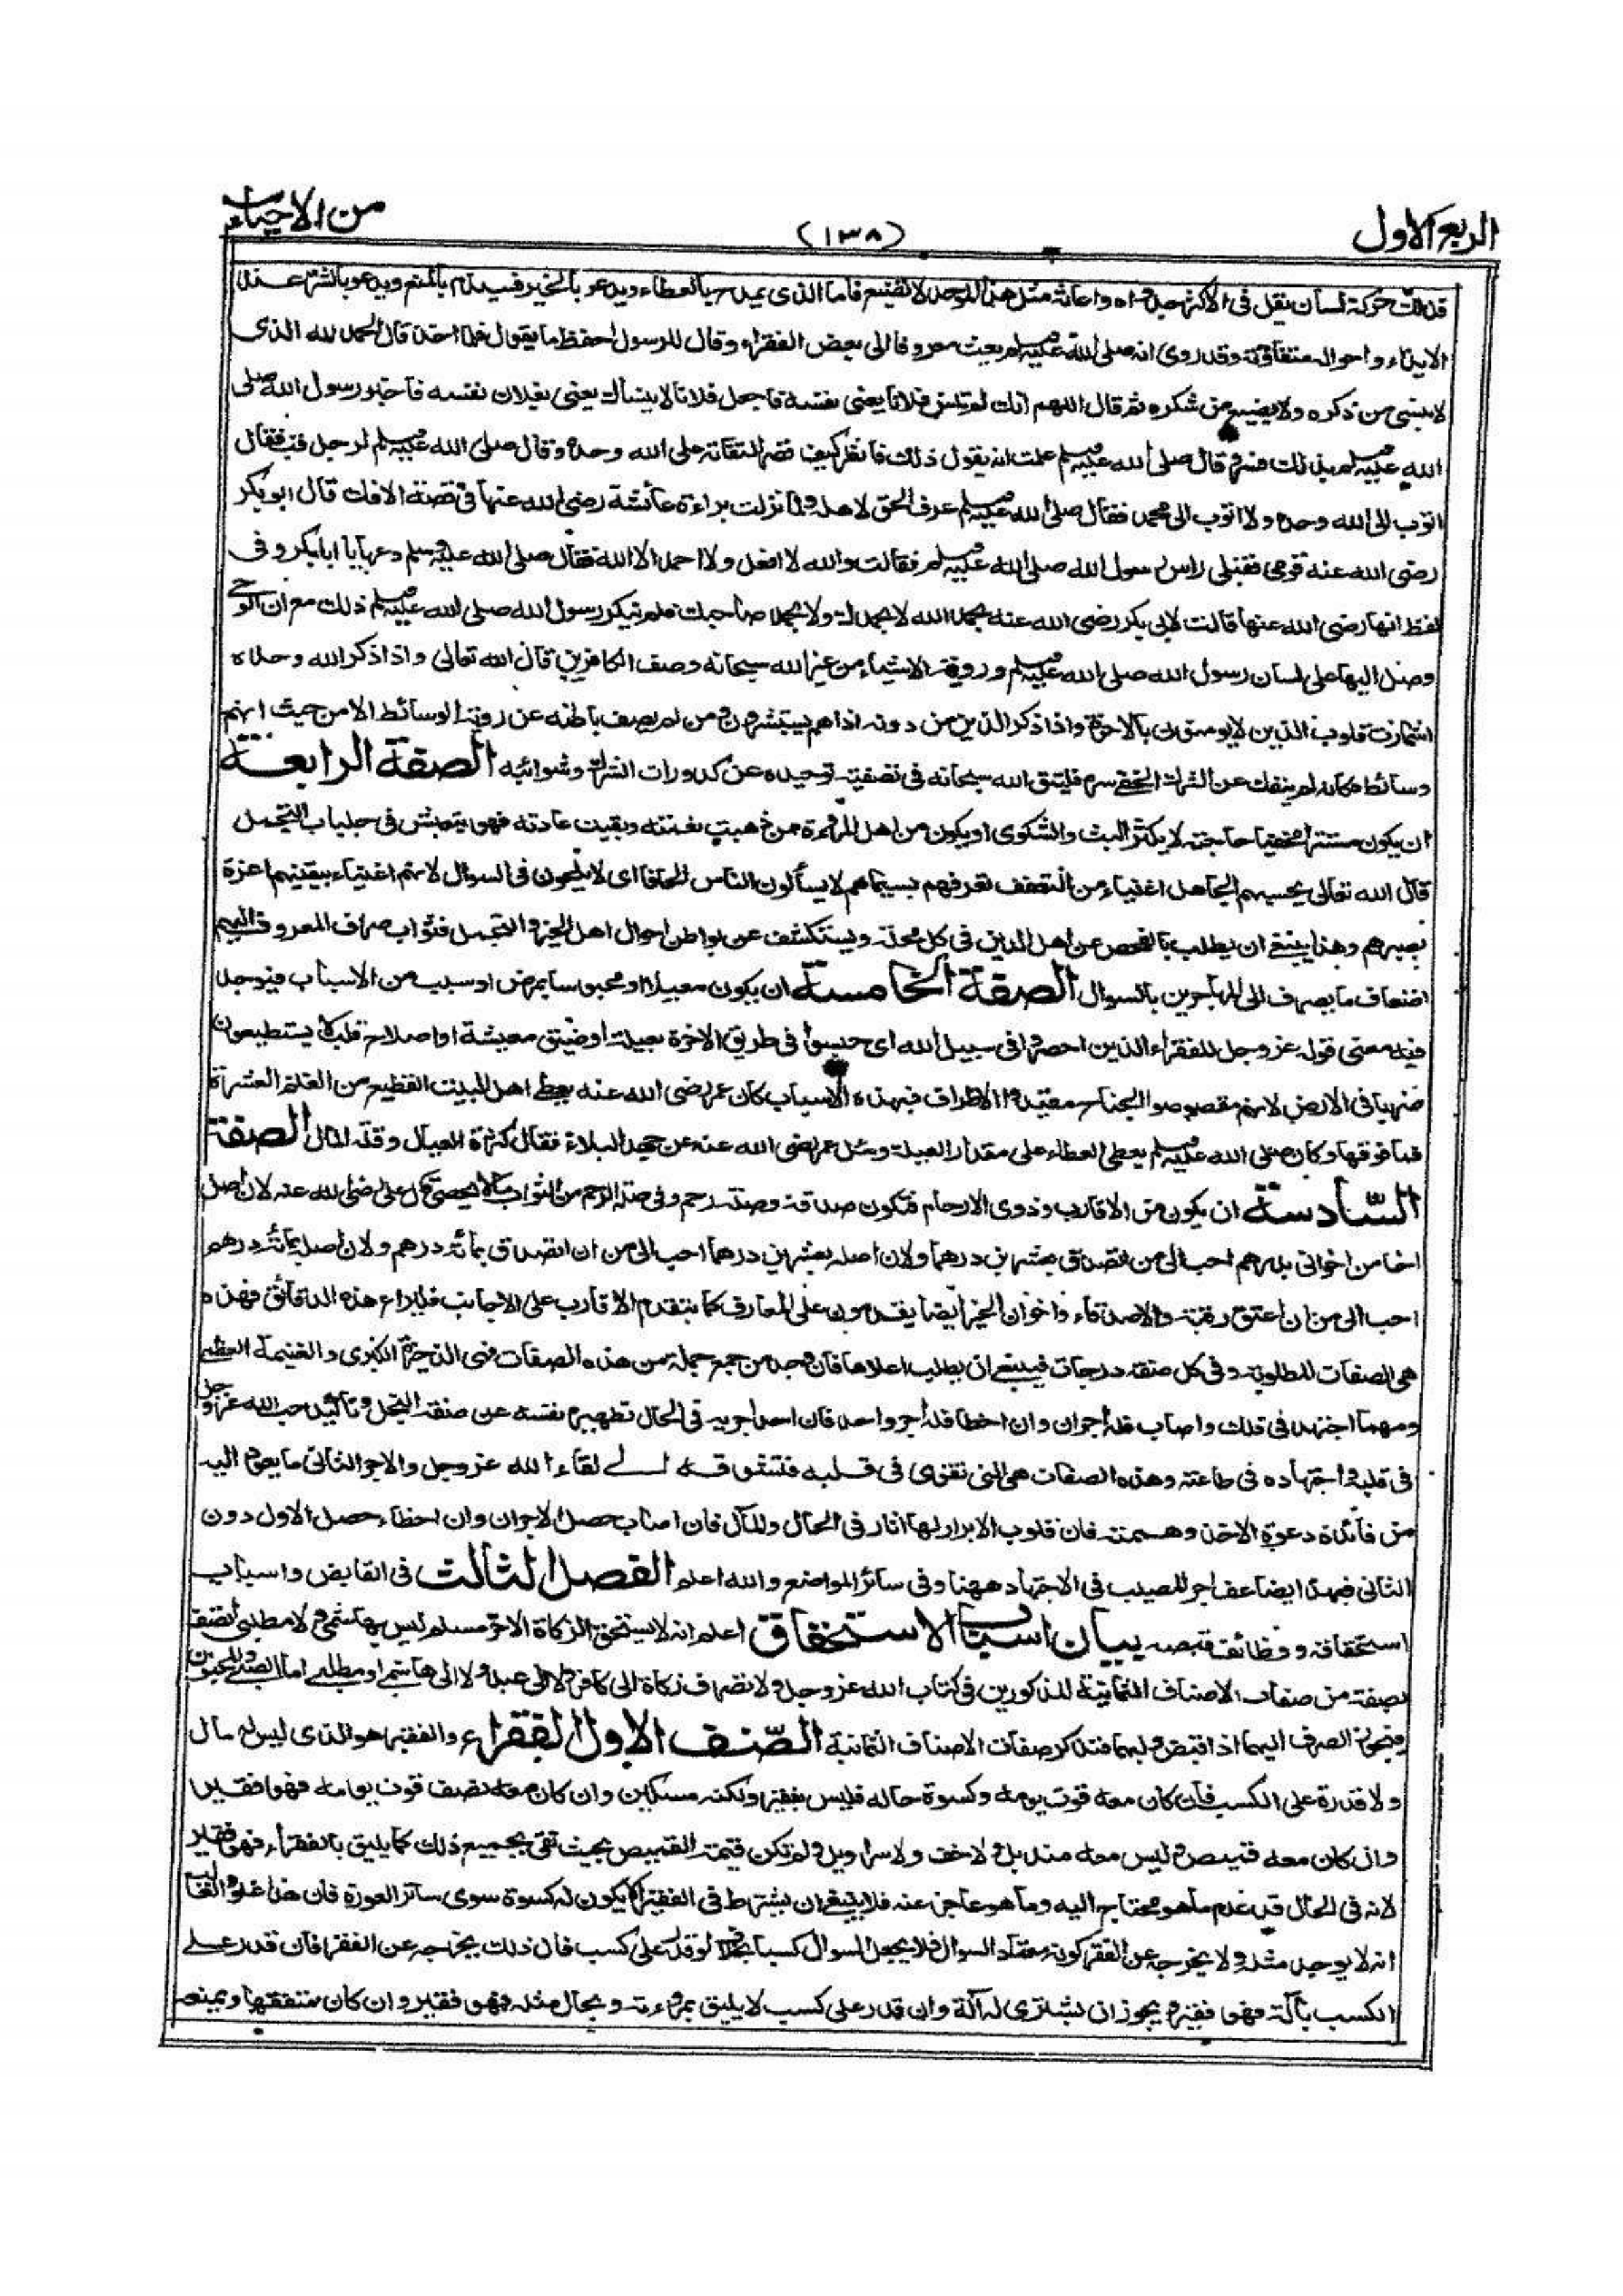 الربع الاول
(١٣٨)
من الاحياء
فذلك حركة لسان يقل في الاكثر جدواه واعانة مثل هذا الموحد لا تضيع فاما الذى يمدح بالعطاء ويدعو بالخير فسيذم بالمنع ويدعو بالشر عند
الايذاء واحواله متفاوتة وقد روى انه صلى الله عليه وسلم بعث معروفا الى بعض الفقراء وقال للرسول احفظ ما يقول فلما اخذ قال الحمد لله الذى
لا ينسى من ذكره ولا يضيع من شكره ثم قال اللهم انك لم تنس فلانا يعنى نفسه فاجعل فلانا لا ينساك يعنى بفلان نفسه فاخبر رسول الله صلى
الله عليه وسلم بذلك فسر وقال صلى الله عليه وسلم علمت انه يقول ذلك فانظر كيف قصر التفاته على الله وحده وقال صلى الله عليه وسلم لرجل تب فقال
اتوب الى الله وحده ولا اتوب الى محمد فقال صلى الله عليه وسلم عرف الحق لاهله ولما نزلت براءة عائشة رضى الله عنها فى قصة الافك قال ابو بكر
رضى الله عنه قومى فقبلى راس رسول الله صلى الله عليه وسلم فقالت والله لا افعل ولا احمد الا الله فقال صلى الله عليه وسلم دعها يا ابا بكر وفى
لفظ انها رضى الله عنها قالت لابى بكر رضى الله عنه بحمد الله لا بحمدك ولا بحمد صاحبك فلم ينكر رسول الله صلى الله عليه وسلم ذلك مع ان الوحى
وصل اليها على لسان رسول الله صلى الله عليه وسلم ورؤية الاشياء من غير الله سبحانه وصف الكافرين قال الله تعالى واذا ذكر الله وحده
اشمازت قلوب الذين لا يومنون بالاخرة واذا ذكر الذين من دونه اذا هم يستبشرون ومن لم يصف باطنه عن رؤية الوسائط الا من حيث انهم
وسائط فكانه لم ينفك عن الشرك الخفى سره فليتق الله سبحانه فى تصفية توحيده عن كدورات الشرك وشوائبه الصفة الرابعة
ان يكون مستترا مخفيا حاجته لا يكثر البث والشكوى او يكون من اهل المروة ممن ذهبت نعمته وبقيت عادته فهو يتعيش فى جلباب التجمل
قال الله تعالى يحسبهم الجاهل اغنياء من التعفف تعرفهم بسيماهم لا يسألون الناس الحافا اى لا يلحون فى السوال لانهم اغنياء بيقينهم اعزة
بصبرهم وهذا ينبغى ان يطلب بالفحص عن اهل الدين فى كل محلة ويستكشف عن بواطن احوال اهل الخير والتجمل فثواب صرف المعروف اليهم
اضعاف ما يصرف الى المجاهرين بالسوال الصفة الخامسة ان يكون معيلا او محبوسا بمرض او سبب من الاسباب فيوجد
فيه معنى قوله عز وجل للفقراء الذين احصروا فى سبيل الله اى حبسوا فى طريق الاخرة بعيلة او ضيق معيشة او اصلاح قلب لا يستطيعون
ضربا فى الارض لانهم مقصوصوا الجناح مقيدوا الاطراف فبهذه الاسباب كان عمر رضى الله عنه يعطى اهل البيت القطيع من الغنم العشرة
فما فوقها وكان صلى الله عليه وسلم يعطى العطاء على مقدار العيلة وسئل عمر رضى الله عنه عن جهد البلاء فقال كثرة العيال وقلة المال الصفة
السادسة ان يكون من الاقارب وذوى الارحام فتكون صدقة وصلة رحم وفى صلة الرحم من الثواب ما لا يحصى قال على رضى الله عنه لان اصل
اخا من اخوانى بدرهم احب الى من ان اتصدق بعشرين درهما ولان اصله بعشرين درهما احب الى من ان اتصدق بمائة درهم ولان اصله بمائة درهم
احب الى من ان اعتق رقبة والاصدقاء واخوان الخير ايضا يقدمون على المعارف كما يتقدم الاقارب على الاجانب فليراع هذه الدقائق فهذه
هى الصفات المطلوبة وفى كل صفة درجات فينبغى ان يطلب اعلاها فان وجد من جمع جملة من هذه الصفات فهى الذخيرة الكبرى والغنيمة العظمى
ومهما اجتهد فى ذلك واصاب فله اجران وان اخطا فله اجر واحد فان احد اجريه فى الحال تطهيره نفسه عن صفة البخل وتاكيد حب الله عز وجل
فى قلبه واجتهاده فى طاعته وهذه الصفات هى التى تقوى فى قلبه فتشوقه الى لقاء الله عز وجل والاجر الثانى ما يعود اليه
من فائدة دعوة الاخذ وهمته فان قلوب الابرار لها اثار فى الحال والمآل فان اصاب حصل الاجران وان اخطاء حصل الاول دون
الثانى فبهذا يضاعف اجر المصيب فى الاجتهاد ههنا وفى سائر المواضع والله اعلم الفصل الثالث فى القابض واسباب
استحقاقه ووظائف قبضه بيان اسباب الاستحقاق اعلم انه لا يستحق الزكاة الا حر مسلم ليس بهاشمى ولا مطلبى اتصف
بصفة من صفات الاصناف الثمانية المذكورين فى كتاب الله عز وجل ولا تصرف زكاة الى كافر ولا الى عبد ولا الى هاشمى او مطلبى اما الصبى والمجنون
فيجوز الصرف اليهما اذا قبض وليهما فنذكر صفات الاصناف الثمانية الصنف الاول الفقراء والفقير هو الذى ليس له مال
ولا قدرة على الكسب فان كان معه قوت يومه وكسوة حاله فليس بفقير ولكنه مسكين وان كان معه نصف قوت يومه فهو فقير
وان كان معه قميص وليس معه منديل ولا خف ولا سراويل ولم تكن قيمة القميص بحيث تفى بجميع ذلك كما يليق بالفقراء فهو فقير
لانه فى الحال قد عدم ما هو محتاج اليه وما هو عاجز عنه فلا ينبغى ان يشترط فى الفقير ان لا يكون له كسوة سوى ساتر العورة فان هذا غلو والغالب
انه لا يوجد مثله ولا يخرجه عن الفقر كونه معتاد السوال فلا يجعل السوال كسبا بخلاف ما لو قدر على كسب فان ذلك يخرجه عن الفقر فان قدر على
الكسب بآلة فهو فقير ويجوز ان يشترى له آلة وان قدر على كسب لا يليق بمروءته وبحال مثله فهو فقير وان كان متفقها ويمنعه